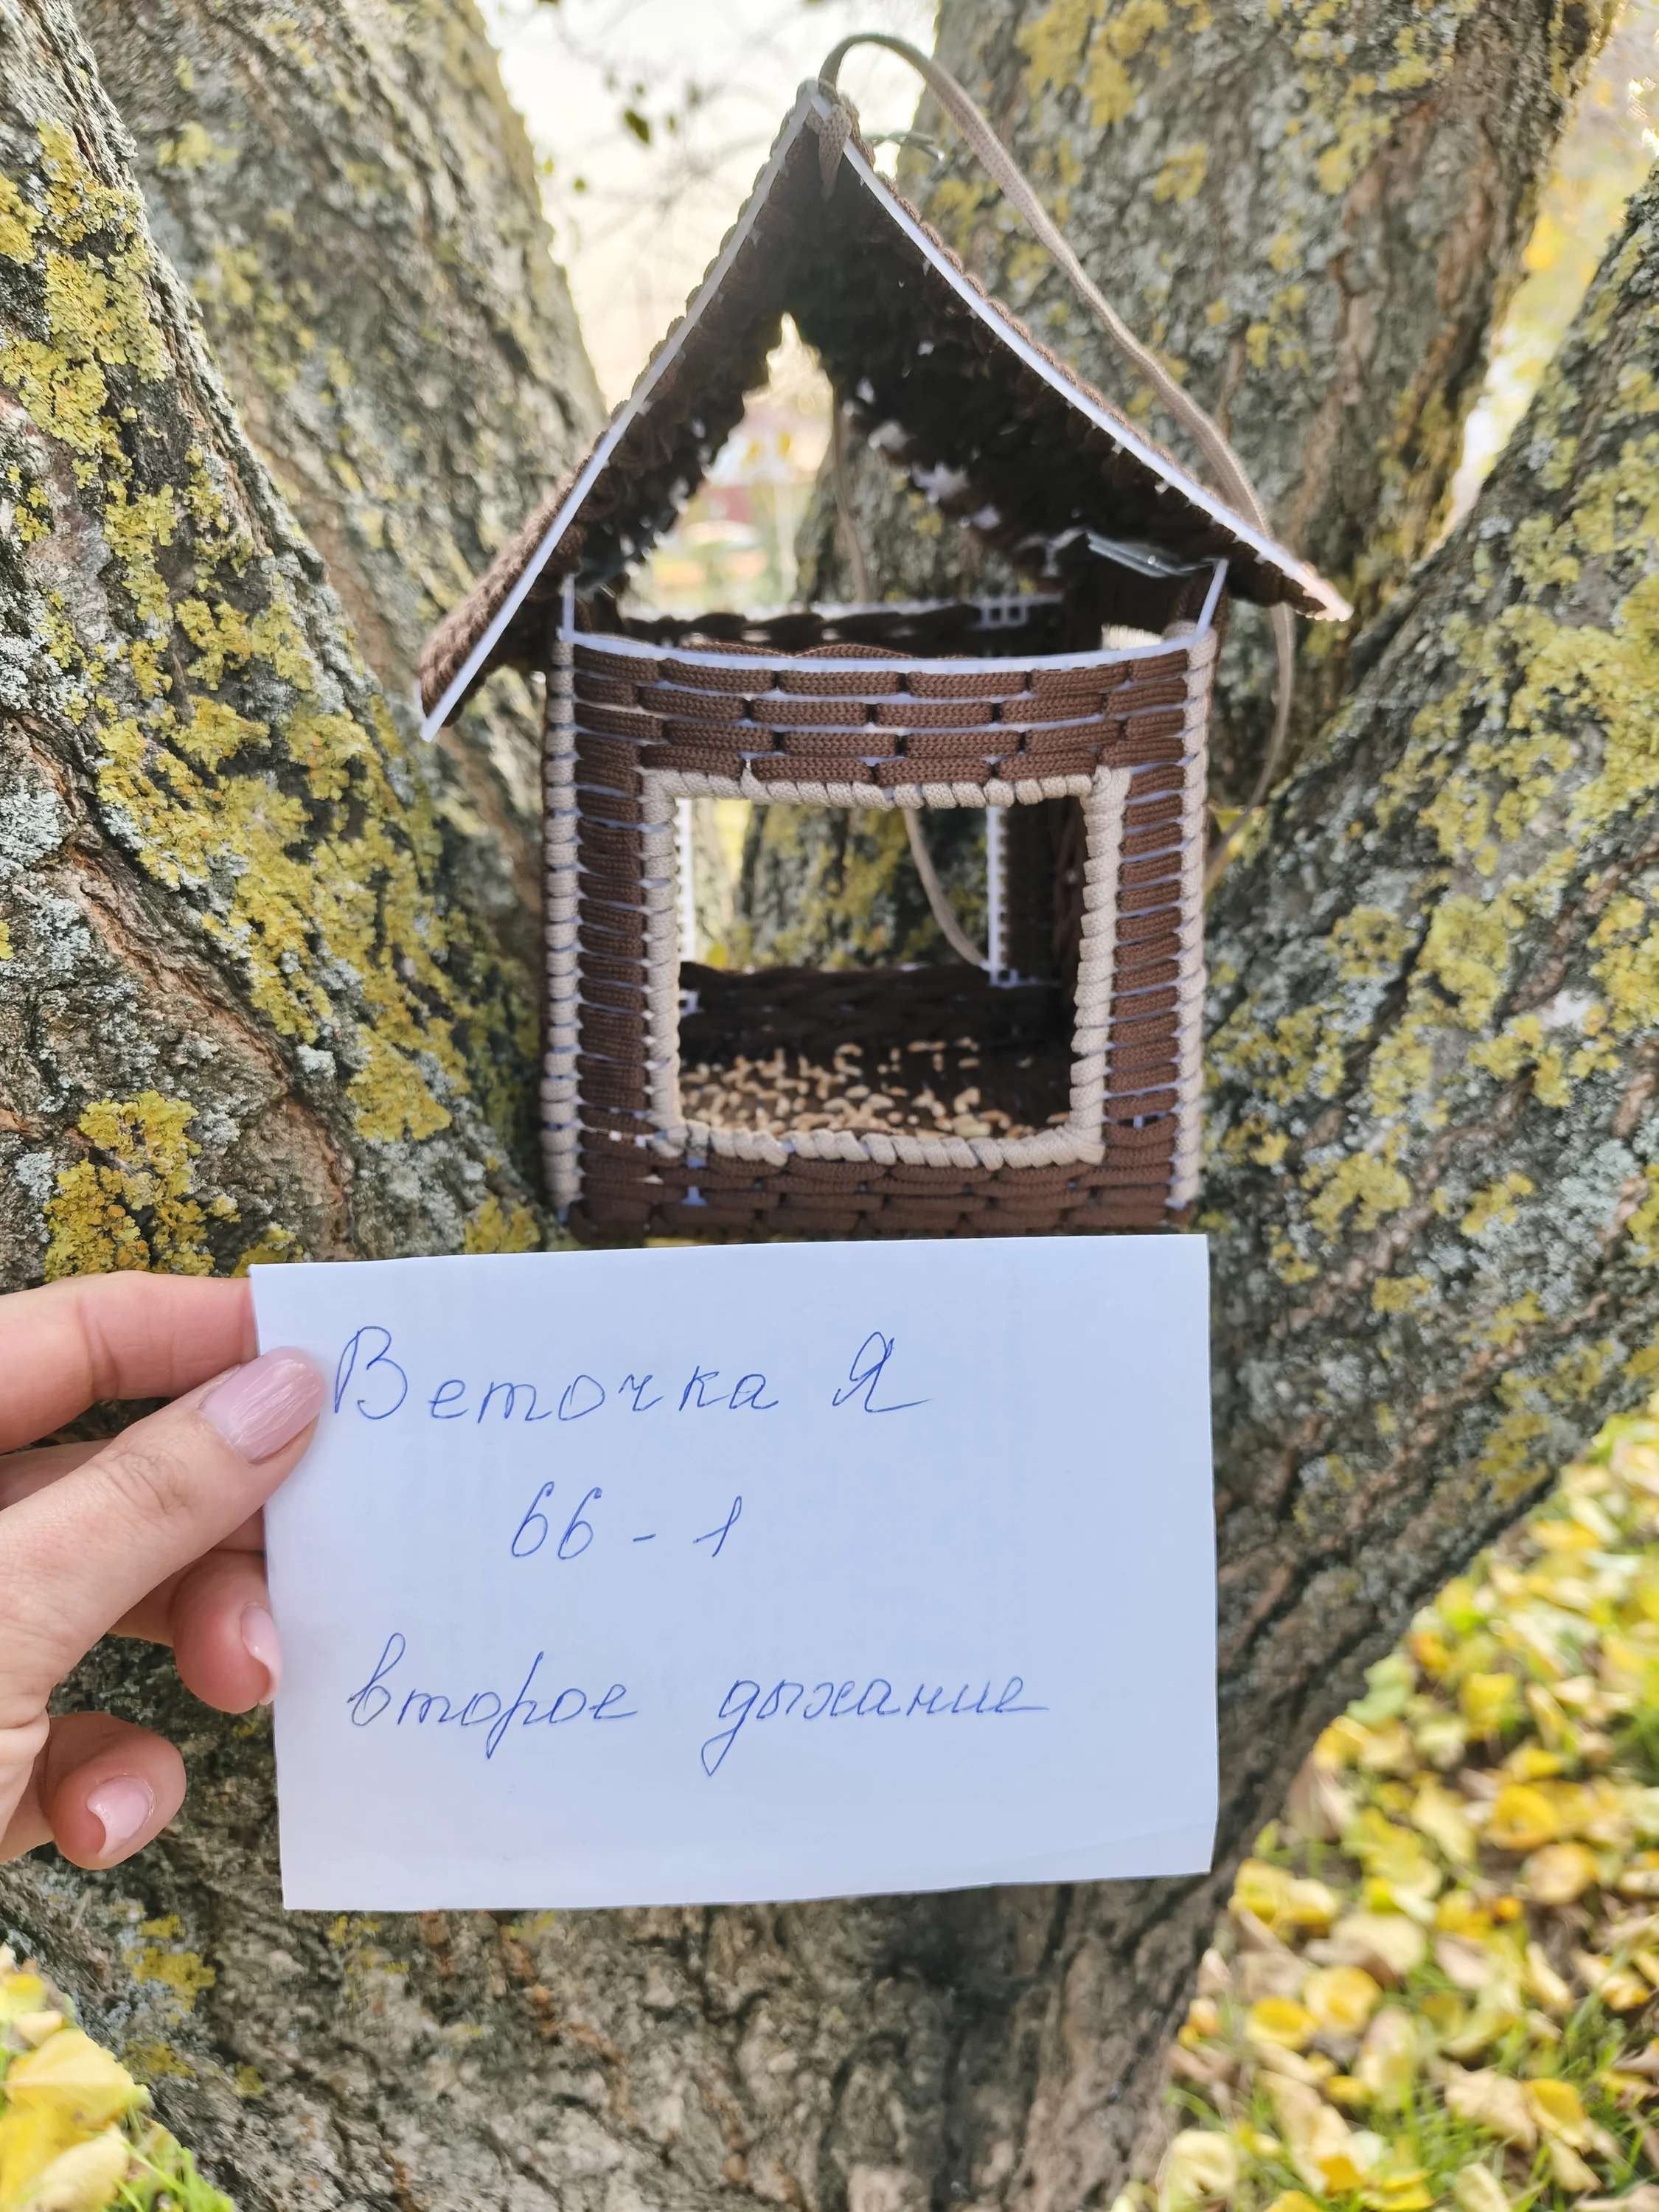 Веточка Я
66 - 1
второе дыхание